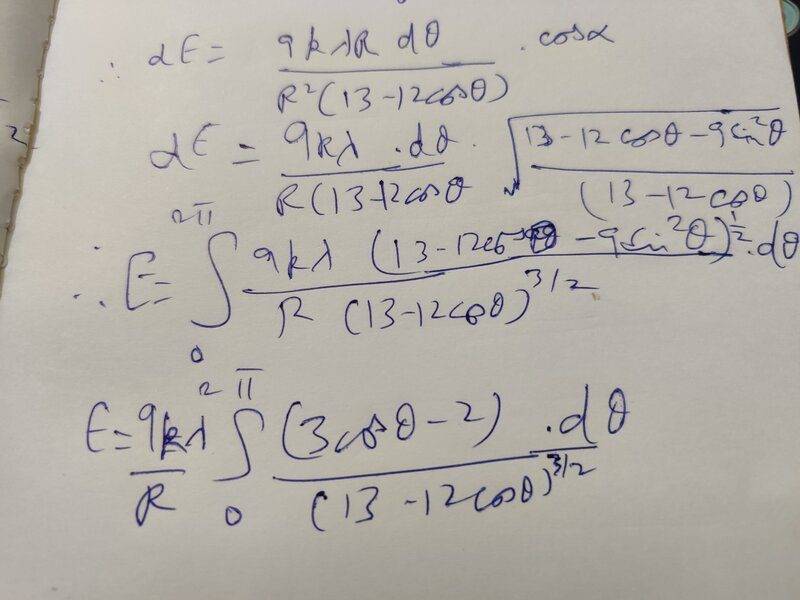 ∴ dE = 9kλR dθ / R²(13-12cosθ) . cosα
dE = 9kλ . dθ / R(13-12cosθ . √(13-12cosθ-9sin²θ / (13-12cosθ))
∴ E = ∫₀^2π 9kλ (13-12cosθ -9sin²θ)^1/2 . dθ / R (13-12cosθ)^3/2
E = 9kλ / R ∫₀^2π (3cosθ-2) . dθ / (13-12cosθ)^3/2